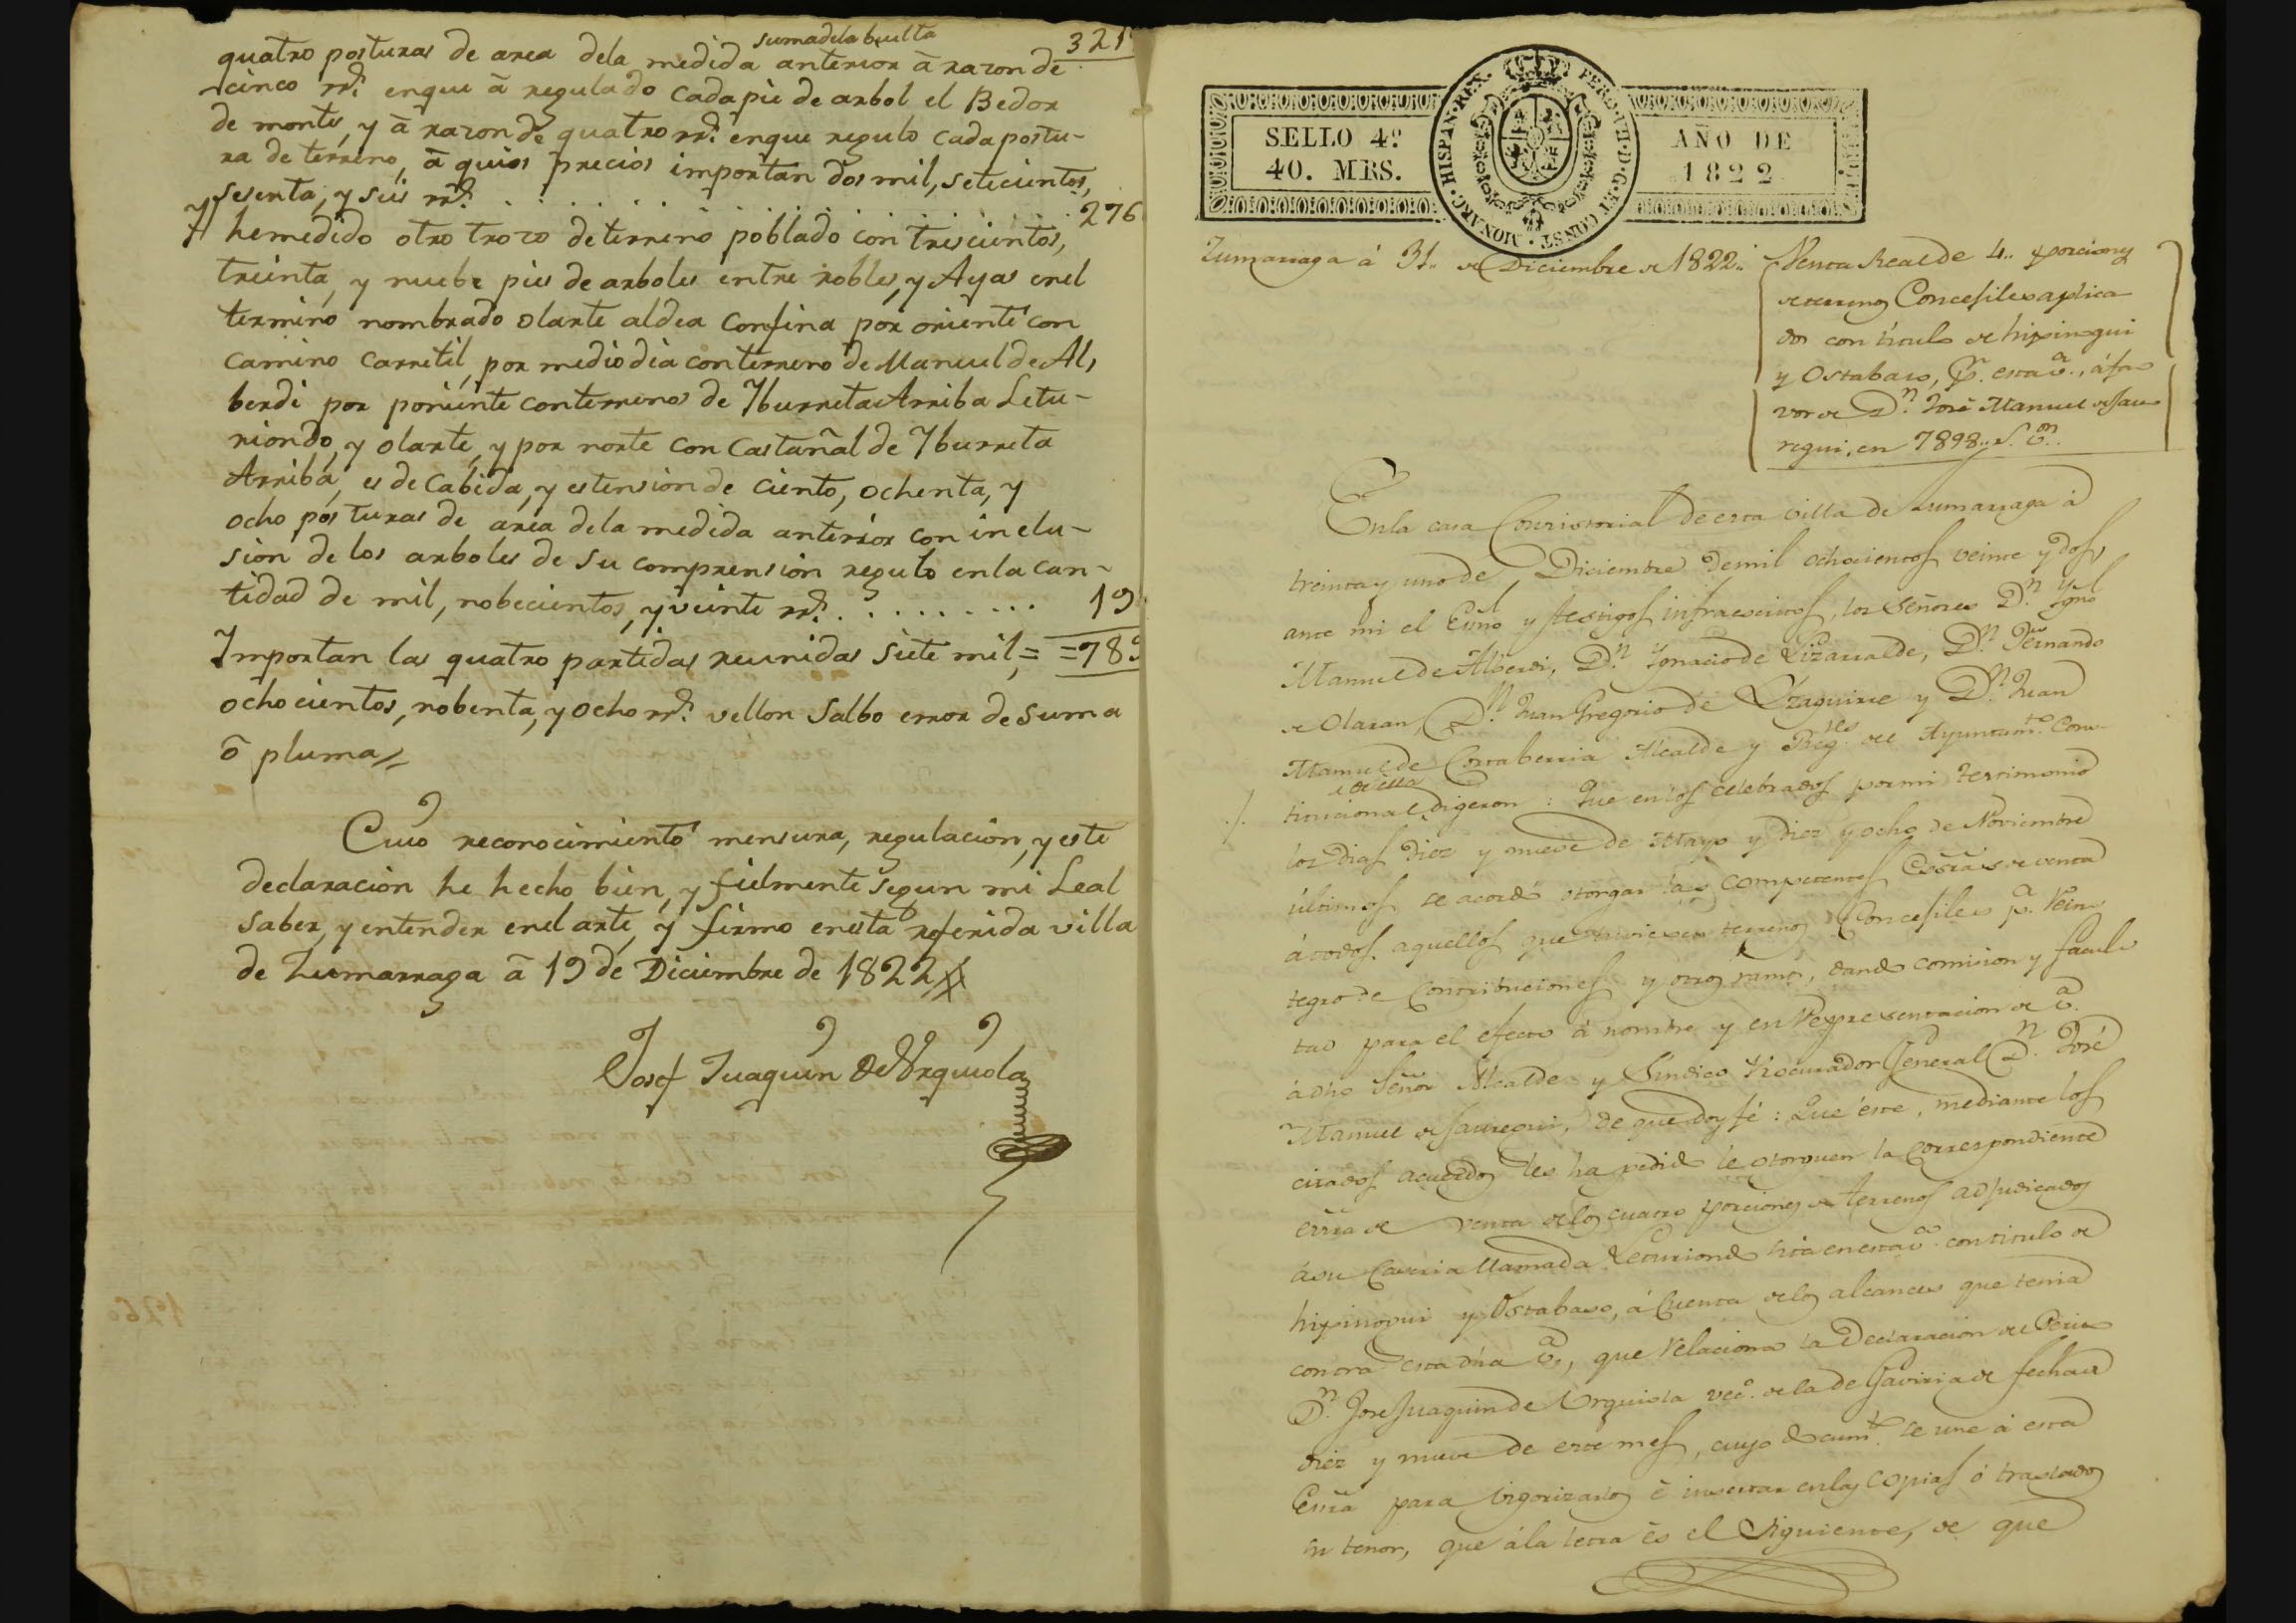 suma dela buelta 321
quatro posturas de area dela medida anterior â razon de
cinco rr.s enque â regulado cada pie de arbol el Bedor
de montes, y â razon de quatro rr.s enque regulo cada postu-
ra de terreno, â quios precios importan dos mil, setecientos,
sesenta, y seis rr.s . . . . . . . . 276
Yt hemedido otro trozo deterreno poblado con trescientos,
treinta, y nuebe pies de arboles entre robles, y Ayas enel
termino nombrado olarte aldea Confina por oriente con
camino carretil, por medio dia conterreno de Manuel de Al,
berdi por poniente conterrenos de Yburreta Arriba Letu-
riondo, y olarte, y por norte con Castañal de Yburreta
Arriba, es de Cabida, y estension de ciento, ochenta, y
ocho posturas de area dela medida anterior con inclu-
sion de los arboles de su comprension regulo enla can-
tidad de mil, nobecientos, y veinte rr.s . . . . . . . . 19
Importan las quatro partidas reunidas siete mil, = =789
ochocientos, nobenta, y ocho rr.s vellon Salbo error de Suma
ô pluma
Cuio reconocimiento mensura, regulacion, y este
declaracion he hecho bien, y fielmente segun mi Leal
saber, y entender enel arte, y firmo enesta referida villa
de Zumarraga â 19 de Diciembre de 1822
Josef Juaquin de Urquiola
SELLO 4º
40. MRS.
MONARC. HISPAN. REX. FERD. VII. D. G. ET CONST.
AÑO DE
1822
Zumarraga á 31.. de Diciembre de 1822..
Venta Real de 4.. porciones
de terrenos Concejiles aplica
dos con titulo de hipinogui
y Ostabaso, p.r esta v.a, á fa-
vor de D.n José Manuel de Jau
regui, en 7898.. r.s v.on
En la casa Consistorial de esta villa de Zumarraga á
treinta y uno de Diciembre de mil ochocientos veinte y dos,
ante mi el Esñō y testigos infraescritos, los Señores D.n Ygn.o
Manuel de Alberdi, D.n Ygnacio de Lizarralde, D.n Fernando
de Olaran, D.n Juan Gregorio de Yzaguirre y D.n Juan
Manuel de Cortaberria Alcalde y Reg.res del Ayuntam.to Cons-
titucional de ella digeron: Que en los celebrados por mi testimonio
los dias diez y nueve de Mayo y diez y ocho de Noviembre
últimos se acordó otorgar las competentes Essrās de venta
á todos aquellos que tuviesen terrenos Concejiles p.a Rein
tegro de Contribuciones y otros ramos, dando comision y facul
tad para el efecto á nombre y en Representacion de v.a
á dho Señor Alcalde y Sindico Procurador General D.n José
Manuel de Jauregui, de que doy fé: Que éste, mediante los
citados acuerdos les ha pedido le otorguen la correspondiente
essrā de venta de los cuatro porciones de terrenos adjudicados
á su Caseria llamada Leturiondo sita en esta v.a con titulo de
hipinogui y Ostabaso, á cuenta de los alcances que tenia
contra esta dha v.a, que relaciona la Declaracion del Perito
D.n José Juaquin de Urquiola vec.o de la de Gaviria de fecha de
diez y nueve de este mes, cuyo docum.to se une á esta
Essrā para vigorizarlo é insertar en las copias ó traslados
su tenor, que á la letra es el siguiente, de que